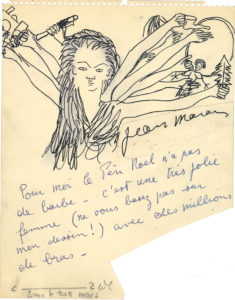 Jean Marais
Pour moi le Père Noël n'a pas
de barbe - c'est une très jolie
femme (ne vous basez pas sur
mon dessin!) avec des millions
de bras -